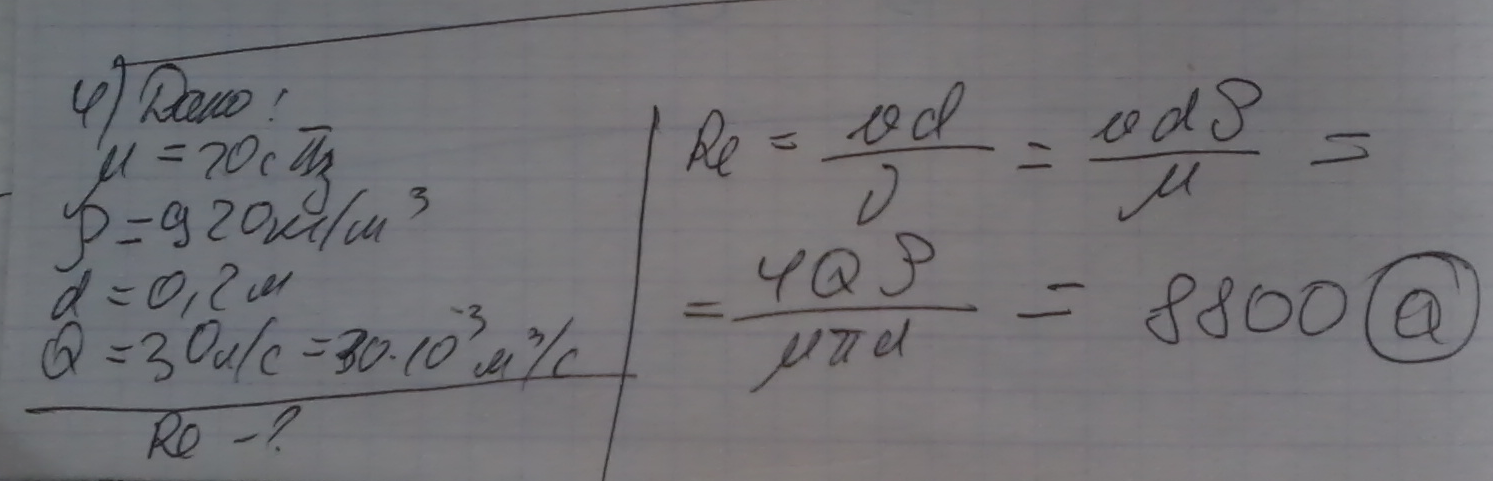 4) Дано:
μ = 20 сПз
ρ = 920 кг/м³
d = 0,2 м
Q = 30 л/с = 30·10⁻³ м³/с
Re - ?
Re = υd/ν = υdρ/μ =
= 4Qρ/μπd = 8800 (а)